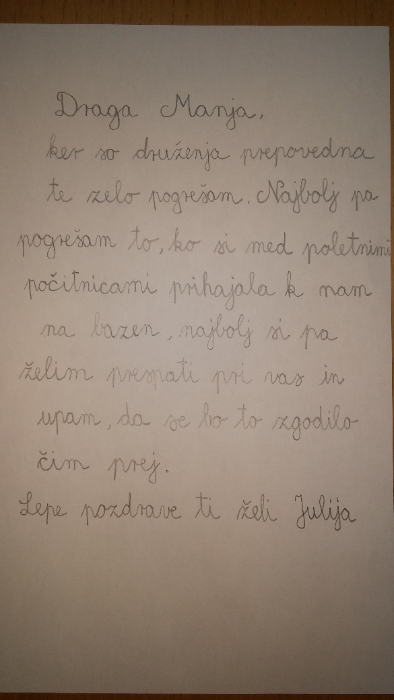 Draga Manja,
ker so druženja prepovedna
te zelo pogrešam. Najbolj pa
pogrešam to, ko si med poletnimi
počitnicami prihajala k nam
na bazen, najbolj si pa
želim prespati pri vas in
upam, da se bo to zgodilo
čim prej.
Lepe pozdrave ti želi Julija